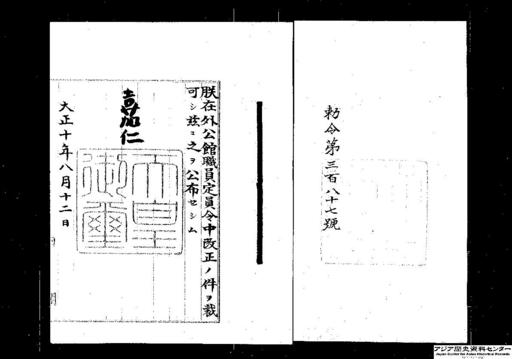 勅令第三百八十七號
朕在外公館職員定員令中改正ノ件ヲ裁
可シ玆ニ之ヲ公布セシム
嘉仁
天皇御璽
大正十年八月十二日
アジア歴史資料センター
Japan Center for Asian Historical Records